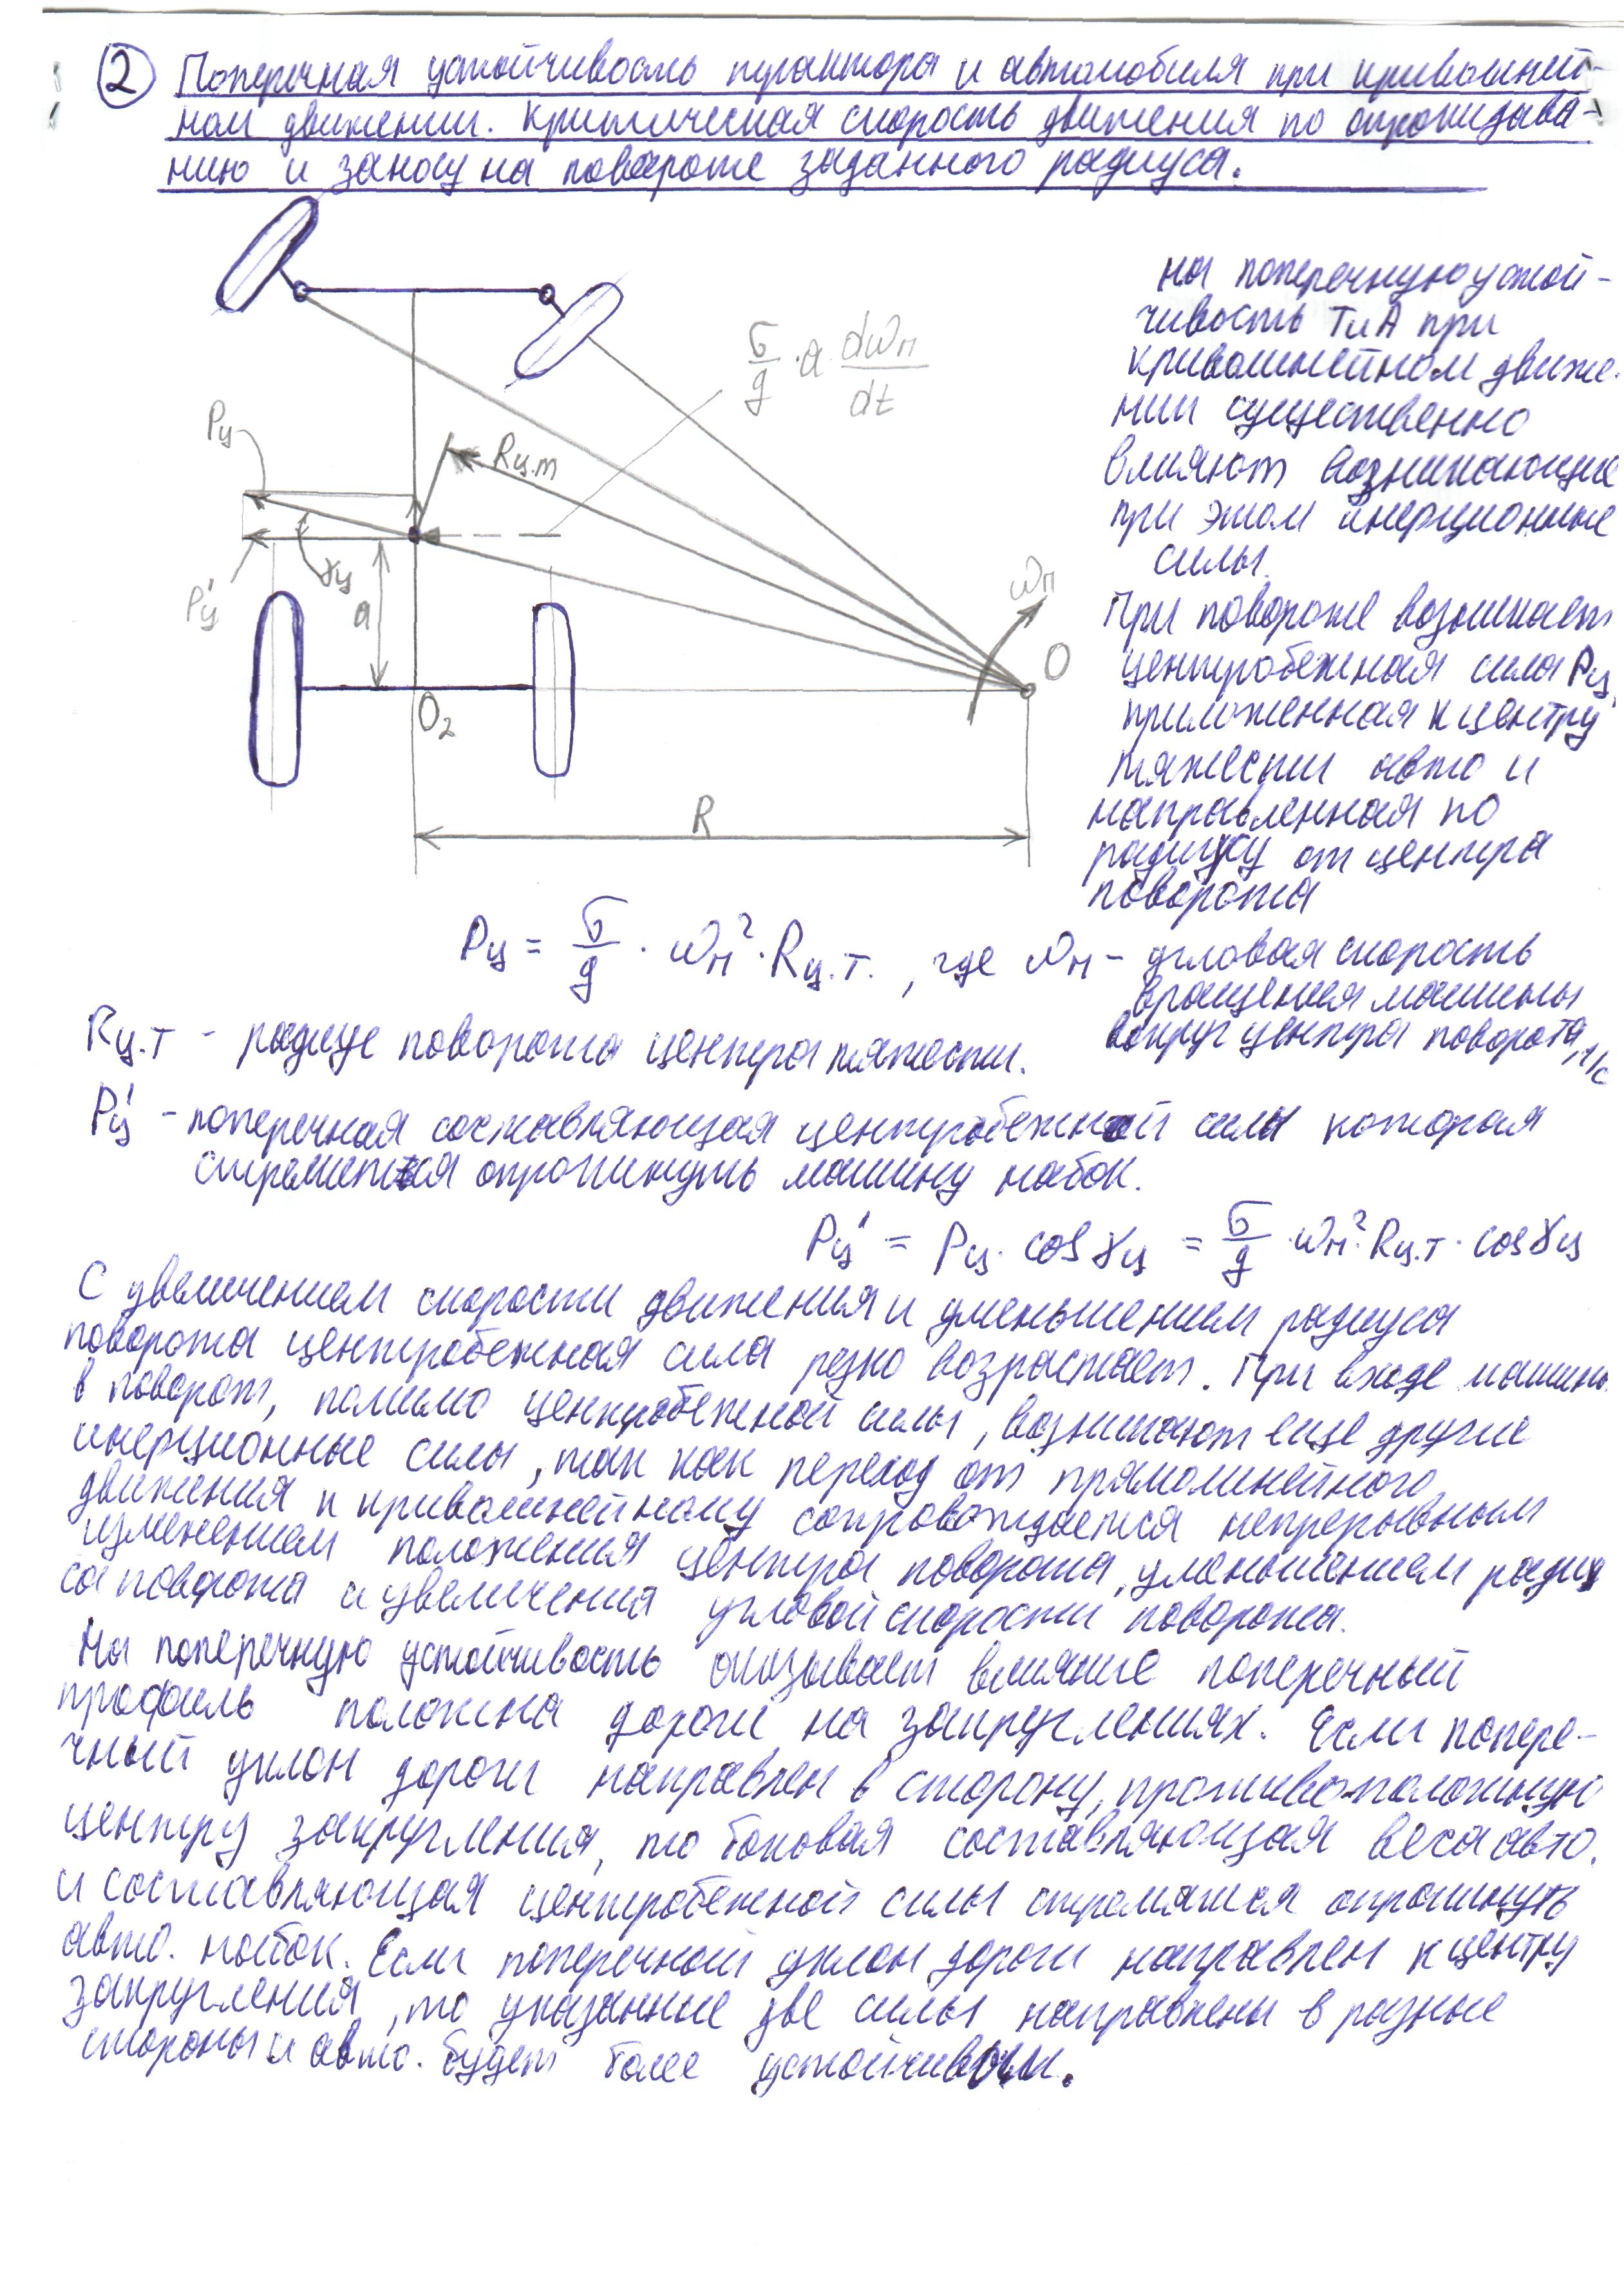 2 Поперечная устойчивость трактора и автомобиля при криволиней-
ном движении. Критическая скорость движения по опрокидыва-
нию и заносу на повороте заданного радиуса.
G/g · a dωп/dt
Rц.т
Pц
P'ц
γц
a
O₂
ωп
O
R
на поперечную устой-
чивость ТиА при
криволинейном движе-
нии существенно
влияют возникающие
при этом инерционные
силы.
При повороте возникает
центробежная сила Pц,
приложенная к центру
тяжести авто и
направленная по
радиусу от центра
поворота
Pц = G/g · ωп² · Rц.т. , где ωп - угловая скорость
вращения машины
вокруг центра поворота, 1/с
Rц.т - радиус поворота центра тяжести.
P'ц - поперечная составляющая центробежной силы которая
стремится опрокинуть машину набок.
P'ц = Pц · cosγц = G/g · ωп² · Rц.т · cosγц
С увеличением скорости движения и уменьшением радиуса
поворота центробежная сила резко возрастает. При входе машины
в поворот, помимо центробежной силы, возникают еще другие
инерционные силы, так как переход от прямолинейного
движения к криволинейному сопровождается непрерывным
изменением положения центра поворота, уменьшением радиу
са поворота и увеличения угловой скорости поворота.
На поперечную устойчивость оказывает влияние поперечный
профиль полотна дороги на закруглениях. Если попере-
чный уклон дороги направлен в сторону, противоположную
центру закругления, то боковая составляющая веса авто.
и составляющая центробежной силы стремятся опрокинуть
авто. набок. Если поперечный уклон дороги направлен к центру
закругления, то указанные две силы направлены в разные
стороны и авто. будет более устойчивым.